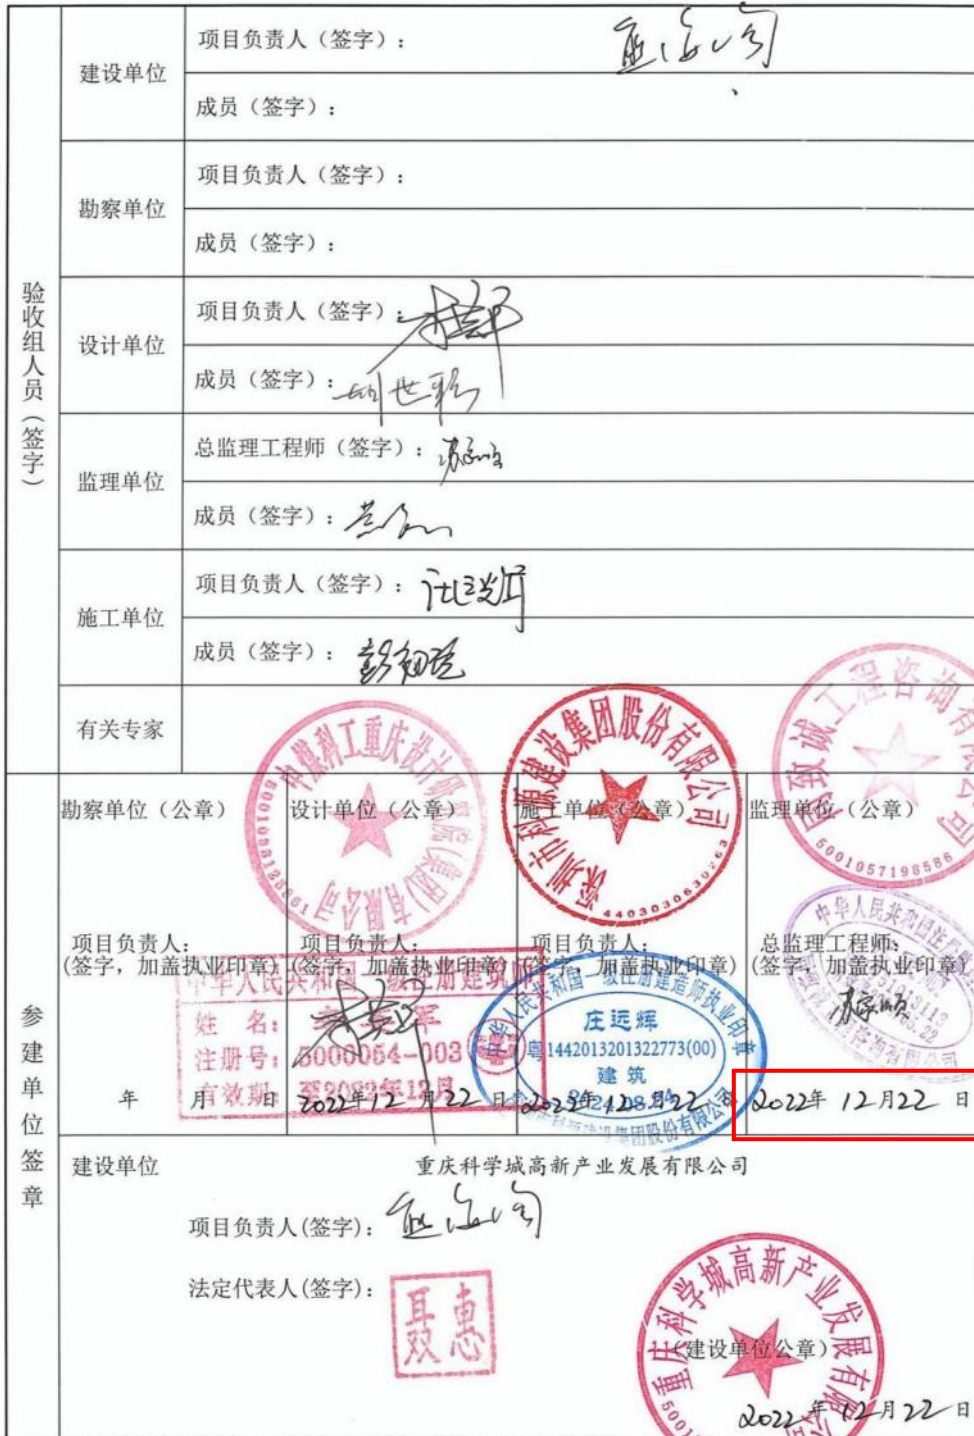 验收组人员（签字）
建设单位
项目负责人（签字）：
成员（签字）：
勘察单位
项目负责人（签字）：
成员（签字）：
设计单位
项目负责人（签字）：
成员（签字）：
监理单位
总监理工程师（签字）：
成员（签字）：
施工单位
项目负责人（签字）：
成员（签字）：
有关专家
参建单位签章
勘察单位（公章）
项目负责人:
(签字，加盖执业印章)
年 月 日
设计单位（公章）
中煤科工重庆设计研究院(集团)有限公司
项目负责人:
(签字，加盖执业印章)
姓 名:
注册号: 5000054-003
有效期: 至2022年12月
2022年12月22日
施工单位（公章）
深圳市科源建设集团股份有限公司
4403030630263
项目负责人:
(签字，加盖执业印章)
中华人民共和国一级注册建造师执业印章
庄远辉
粤1442013201322773(00)
建筑
2022年12月22日
监理单位（公章）
5001057198586
总监理工程师:
(签字，加盖执业印章)
2022年 12月22日
建设单位
重庆科学城高新产业发展有限公司
项目负责人(签字):
法定代表人(签字):
重庆科学城高新产业发展有限公司
（建设单位公章）
2022年12月22日